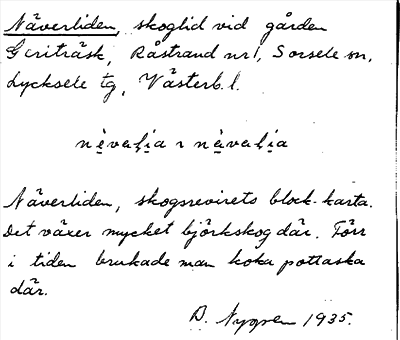 Näverliden, skoglid vid gården
Giriträsk, Råstrand nr 1, Sorsele sn,
Lycksele tg, Västerb. l.
Näverliden, skogsrevirets block-karta.
Det växer mycket björkskog där. Förr
i tiden brukade man koka pottaska
där.
B. Nygren 1935.